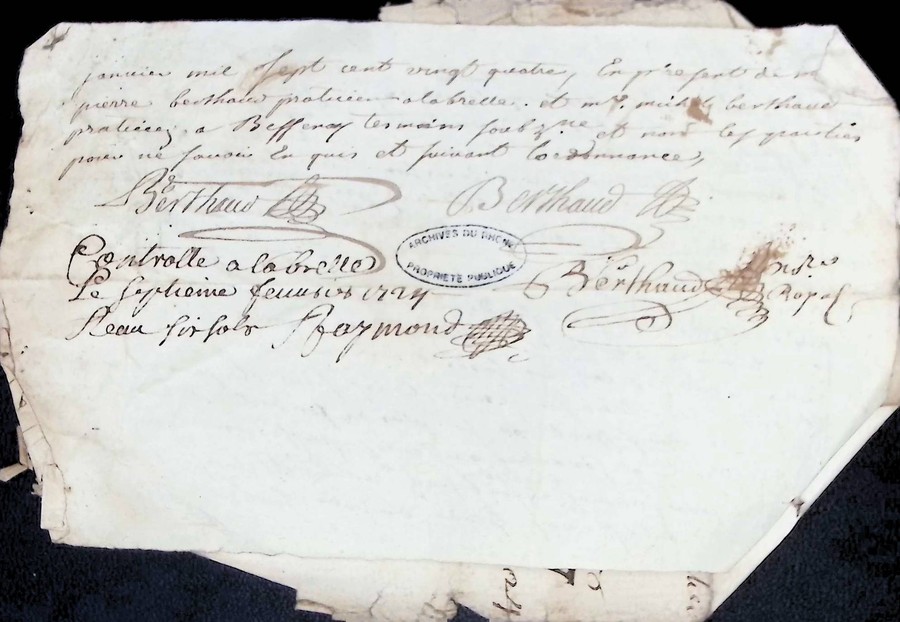 janvier mil sept cent vingt quatre, En present de m
pierre berthaud praticien alabrelle. et mr. michel berthaud
praticien a Bessenay tesmoins soubzne et non les parties
pour ne scavoir Enquis et suivant lordonnance,
Berthaud Berthaud
ARCHIVES DU RHONE
PROPRIETE PUBLIQUE
Controlle alabrelle
Le septieme feuvrier 1724
Reau six sols Raymond
Berthaud nore
Royal